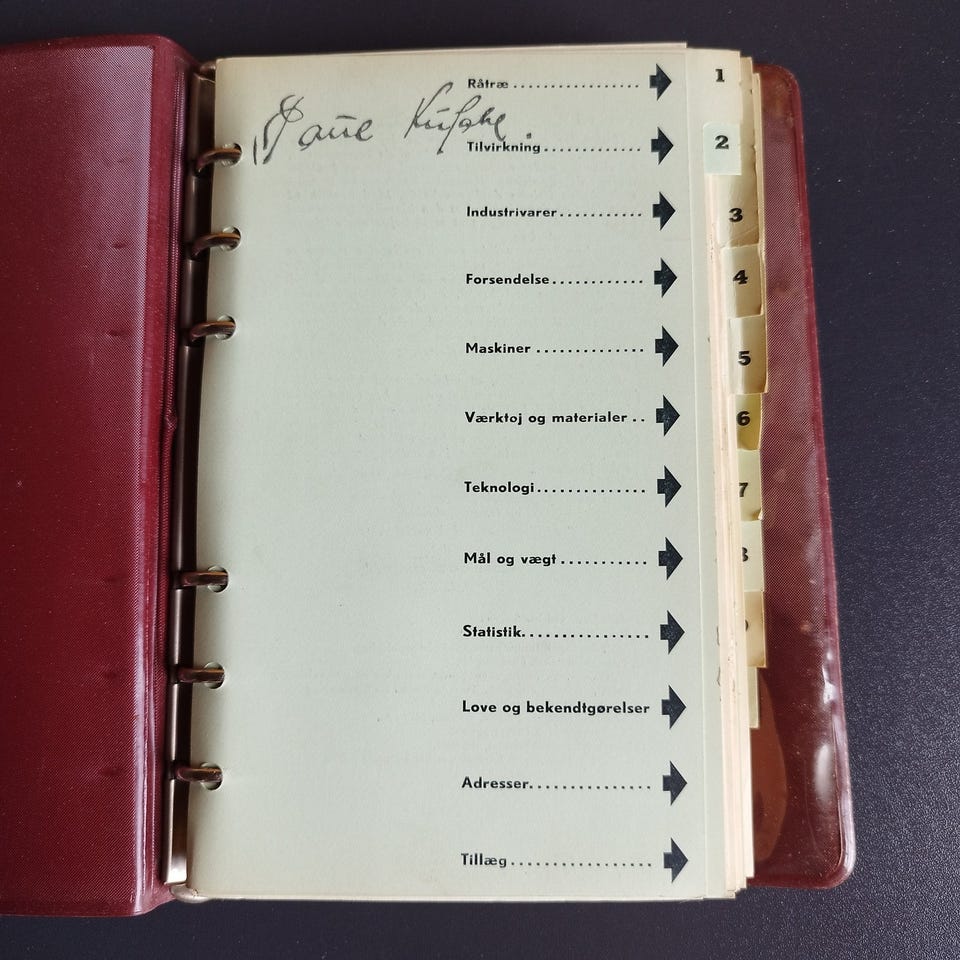 Råtræ ................ 1
Tilvirkning............. 2
Industrivarer........... 3
Forsendelse............ 4
Maskiner .............. 5
Værktøj og materialer .. 6
Teknologi.............. 7
Mål og vægt........... 8
Statistik................
Love og bekendtgørelser
Adresser...............
Tillæg..................